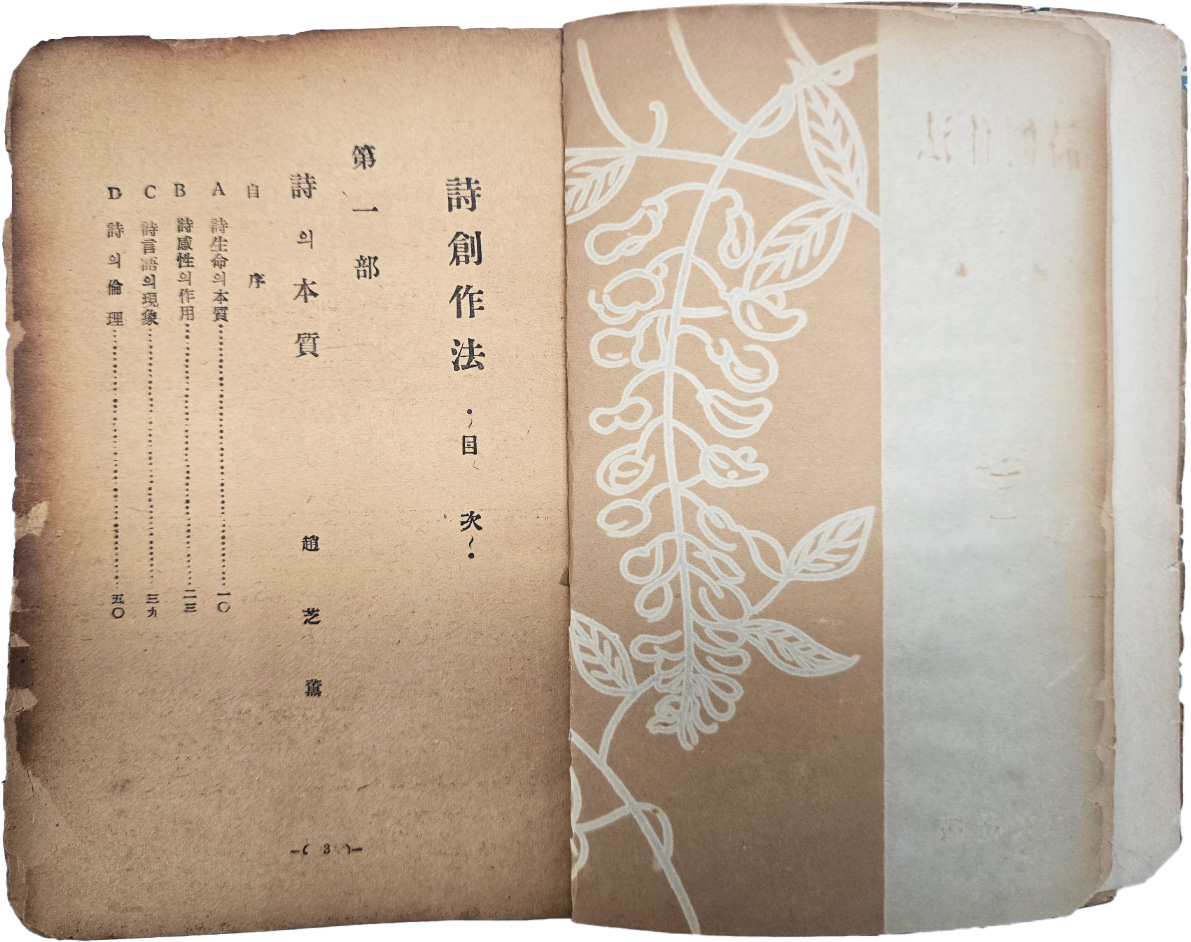 詩創作法 ·目次·
第一部
詩의本質 趙芝薰
自序
A 詩生命의本質……一〇
B 詩感性의作用……二三
C 詩言語의現象……三九
D 詩의倫理……五〇
—( 3 )—